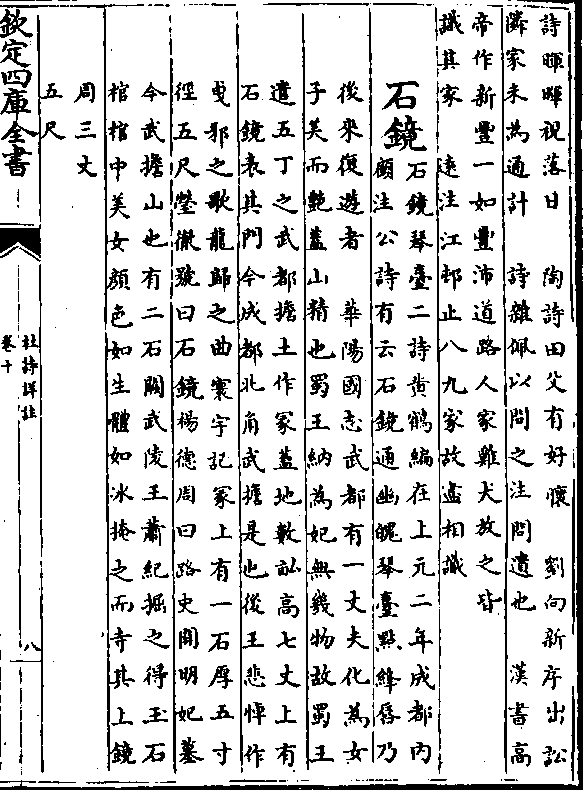 詩暉暉視落日　陶詩田父有好懷　劉向新序出訟
隣家未為通計　詩雜佩以問之注問遺也　漢書高
帝作新豐一如豐沛道路人家雞犬放之皆
識其家　遠注江邨止八九家故盡相識
石鏡
石鏡琴臺二詩黄鶴編在上元二年成都内
顧注公詩有云石鏡通幽魄琴臺㸃絳脣乃
後來復遊者　華陽國志武都有一丈夫化為女
子美而艶葢山精也蜀王納為妃無幾物故蜀王
遣五丁之武都擔土作冢葢地數畝高七丈上有
石鏡表其門今成都北角武擔是也後王悲悼作
臾邪之歌龍歸之曲寰宇記冢上有一石厚五寸
徑五尺瑩徹號曰石鏡楊德周曰路史開明妃墓
今武擔山也有二石闕武陵王蕭紀掘之得玉石
棺棺中美女顔色如生體如冰掩之而寺其上鏡
周三丈
五尺
欽定四庫全書
杜詩詳註
卷十
八